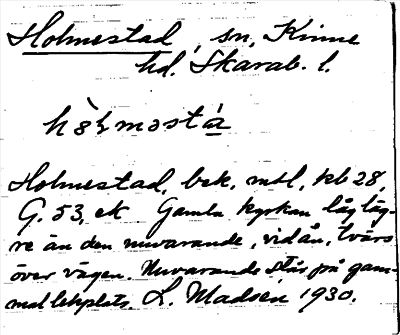 Holmestad, sn, Kinne
hd. Skarab. l.
Holmestad, bek, mtl, kb 28,
G. 53, ek Gamla kyrkan låg läg-
re än den nuvarande, vid ån, tvärs
över vägen. Nuvarande står på gam-
mal lekplats. L. Madsén 1930.